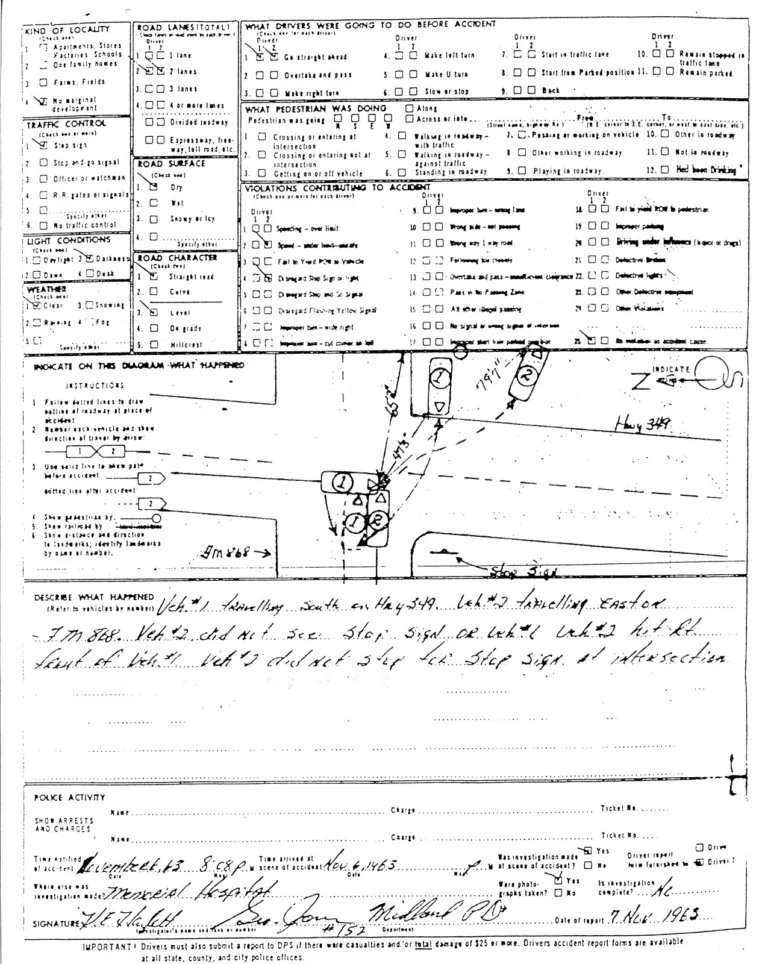 KIND OF LOCALITY
(Check one)
1 Apartments, Stores
Factories Schools
2 One family homes
3 Farms, Fields
4 No marginal
development
TRAFFIC CONTROL
(Check one or more)
1 Stop sign
2 Stop and go signal
3 Officer or watchman
4 R.R. gates or signals
5
Specify other
6 No traffic control
LIGHT CONDITIONS
(Check one)
1 Daylight 3 Darkness
2 Dawn 4 Dusk
WEATHER
(Check one)
1 Clear 3 Snowing
2 Raining 4 Fog
5
Specify other
ROAD LANES (TOTAL)
Driver
1 2
1 1 lane
2 lanes
3. 3 lanes
4. 4 or more lanes
Divided roadway
Expressway, free-
way, toll road, etc.
ROAD SURFACE
(Check one)
1. Dry
2. Wet
3. Snowy or Icy
4.
Specify other
ROAD CHARACTER
(Check two)
1 Straight road
2 Curve
3. Level
4. On grade
5. Hillcrest
WHAT DRIVERS WERE GOING TO DO BEFORE ACCIDENT
(Check one for each driver)
Driver Driver Driver Driver
1 2 1 2 1 2 1 2
1 Go straight ahead 4. Make left turn 7. Start in traffic lane 10. Remain stopped in
traffic lane
2 Overtake and pass 5. Make U turn 8. Start from Parked position 11. Remain parked
3. Make right turn 6. Slow or stop 9. Back
WHAT PEDESTRIAN WAS DOING Along
Pedestrian was going Across or enter From To
N S E W
1 Crossing or entering at
intersection
2 Crossing or entering not at
intersection
3. Getting on or off vehicle
4. Walking in roadway-
with traffic
5. Walking in roadway-
against traffic
6. Standing in roadway
7. Pushing or working on vehicle
8 Other working in roadway
9. Playing in roadway
10. Other in roadway
11. Not in roadway
12. Had been Drinking
VIOLATIONS CONTRIBUTING TO ACCIDENT
(Check one or more for each driver)
Driver
1 2
1 Speeding - over limit
2 Speed - under limit-unsafe
3 Fail to Yield ROW to Vehicle
4 Disregard Stop Sign or light
5 Disregard Stop and Go Signal
6 Disregard Flashing Yellow Signal
7 Improper turn - wide right
8 Improper turn - cut corner on left
9. Improper turn - wrong lane
10 Wrong side - not passing
11 Wrong way 1 way road
12 Following too closely
13 Overtake and pass - insufficient clearance
14 Pass in No Passing Zone
15 All other illegal passing
16 No signal or wrong signal of intention
17 Improper start from parked position
Driver
1 2
18. Fail to yield ROW to pedestrian
19 Improper parking
20 Driving under influence (liquor or drugs)
21 Defective Brakes
22. Defective lights
23. Other Defective equipment
24 Other Violations
25. No violation as accident cause
INDICATE ON THIS DIAGRAM WHAT HAPPENED
INSTRUCTIONS
1 Follow dotted lines to draw
outline of roadway at place of
accident
2 Number each vehicle and show
direction of travel by arrow:
1 2
3 Use solid line to show path
before accident 2
dotted line after accident
2
4 Show pedestrian by
5. Show railroad by
6 Show distance and direction
to landmarks; identify landmarks
by name or number.
INDICATE
Z
1
2
79'7"
65'2"
47'5"
Hwy 349
1
1
2
FM 868
Stop Sign
DESCRIBE WHAT HAPPENED
(Refer to vehicles by number) Veh #1 travelling South on Hwy 349. Veh #2 travelling East on
FM 868. Veh #2 did not see Stop Sign or Veh #1 Veh #2 hit Rt
front of Veh #1 Veh #2 did not stop for Stop Sign at intersection
POLICE ACTIVITY
SHOW ARRESTS
AND CHARGES
Name Charge Ticket No.
Name Charge Ticket No.
Time notified
of accident November 6, 63 8:08 p M Time arrived at
scene of accident Nov 6, 1963 p M Was investigation made
at scene of accident? Yes No Driver report
form furnished to Driver 1 Driver 2
Date Hour Date
Where else was
investigation made Memorial Hospital Were photo-
graphs taken? Yes No Is investigation
complete? No
SIGNATURE #152 Midland PD Date of report 7 Nov 1963
Investigator's name and rank or number Department
IMPORTANT! Drivers must also submit a report to DPS if there were casualties and/or total damage of $25 or more. Drivers accident report forms are available
at all state, county, and city police offices.